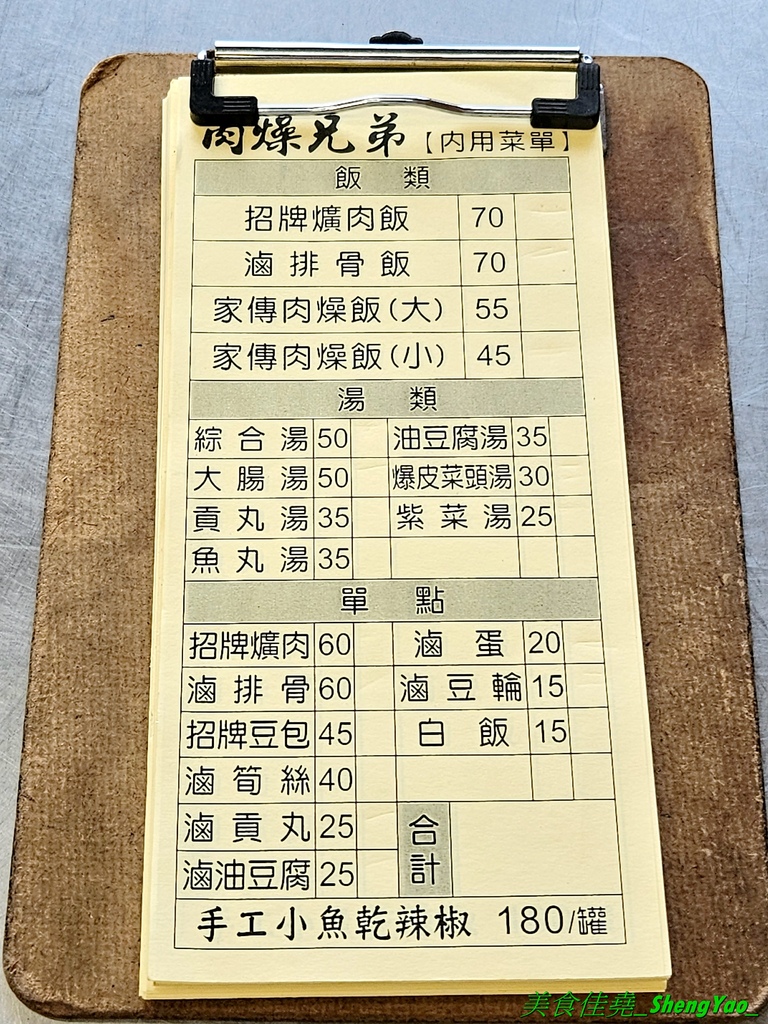 肉燥兄弟【內用菜單】
飯 類
招牌爌肉飯 70
滷排骨飯 70
家傳肉燥飯(大) 55
家傳肉燥飯(小) 45
湯 類
綜合湯 50 油豆腐湯 35
大腸湯 50 爆皮菜頭湯 30
貢丸湯 35 紫菜湯 25
魚丸湯 35
單 點
招牌爌肉 60 滷蛋 20
滷排骨 60 滷豆輪 15
招牌豆包 45 白飯 15
滷筍絲 40
滷貢丸 25 合計
滷油豆腐 25
手工小魚乾辣椒 180/罐
美食佳堯_ShengYao_